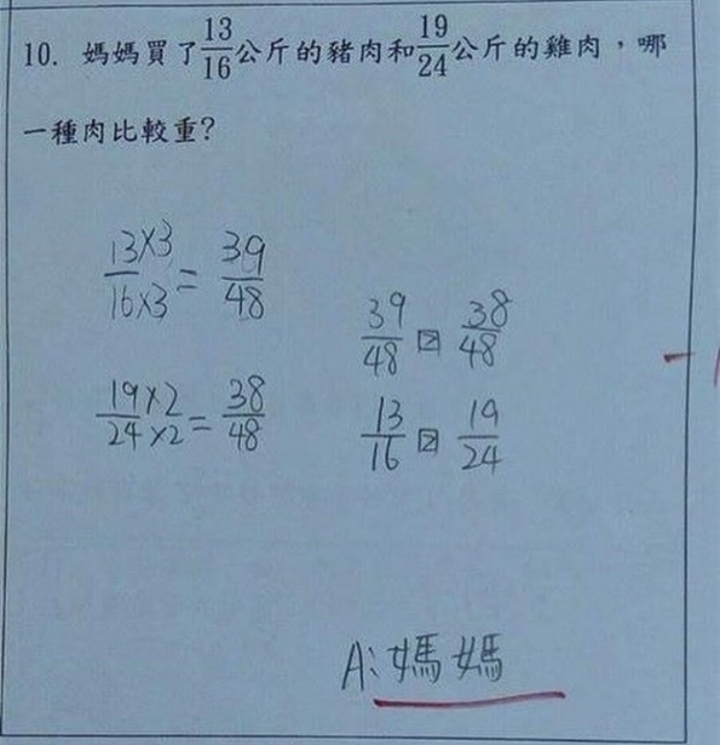 10. 媽媽買了13/16公斤的豬肉和19/24公斤的雞肉，哪
一種肉比較重?
13×3/16×3 = 39/48
19×2/24×2 = 38/48
39/48 > 38/48
13/16 > 19/24
A:媽媽